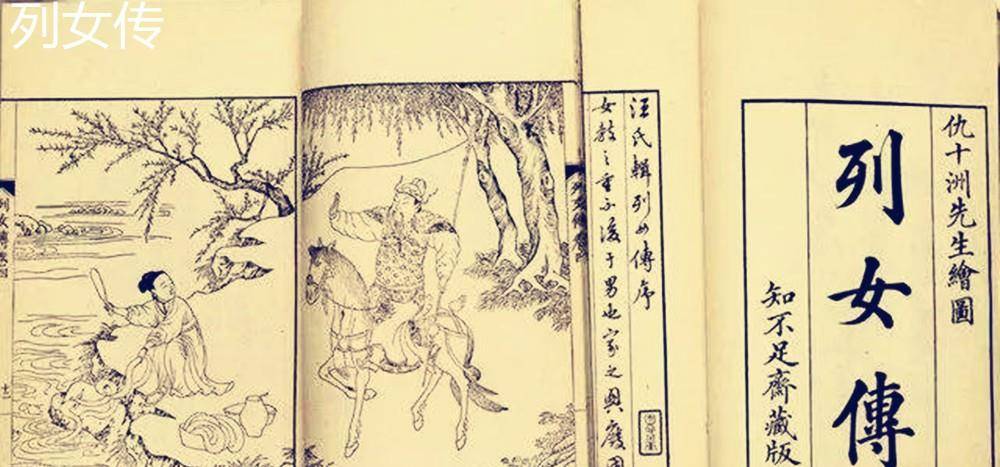 列女传
仇十洲先生繪圖
列女傳
知不足齋藏版
汪氏輯列女傳序
女教之重不後于男也家之興廢國